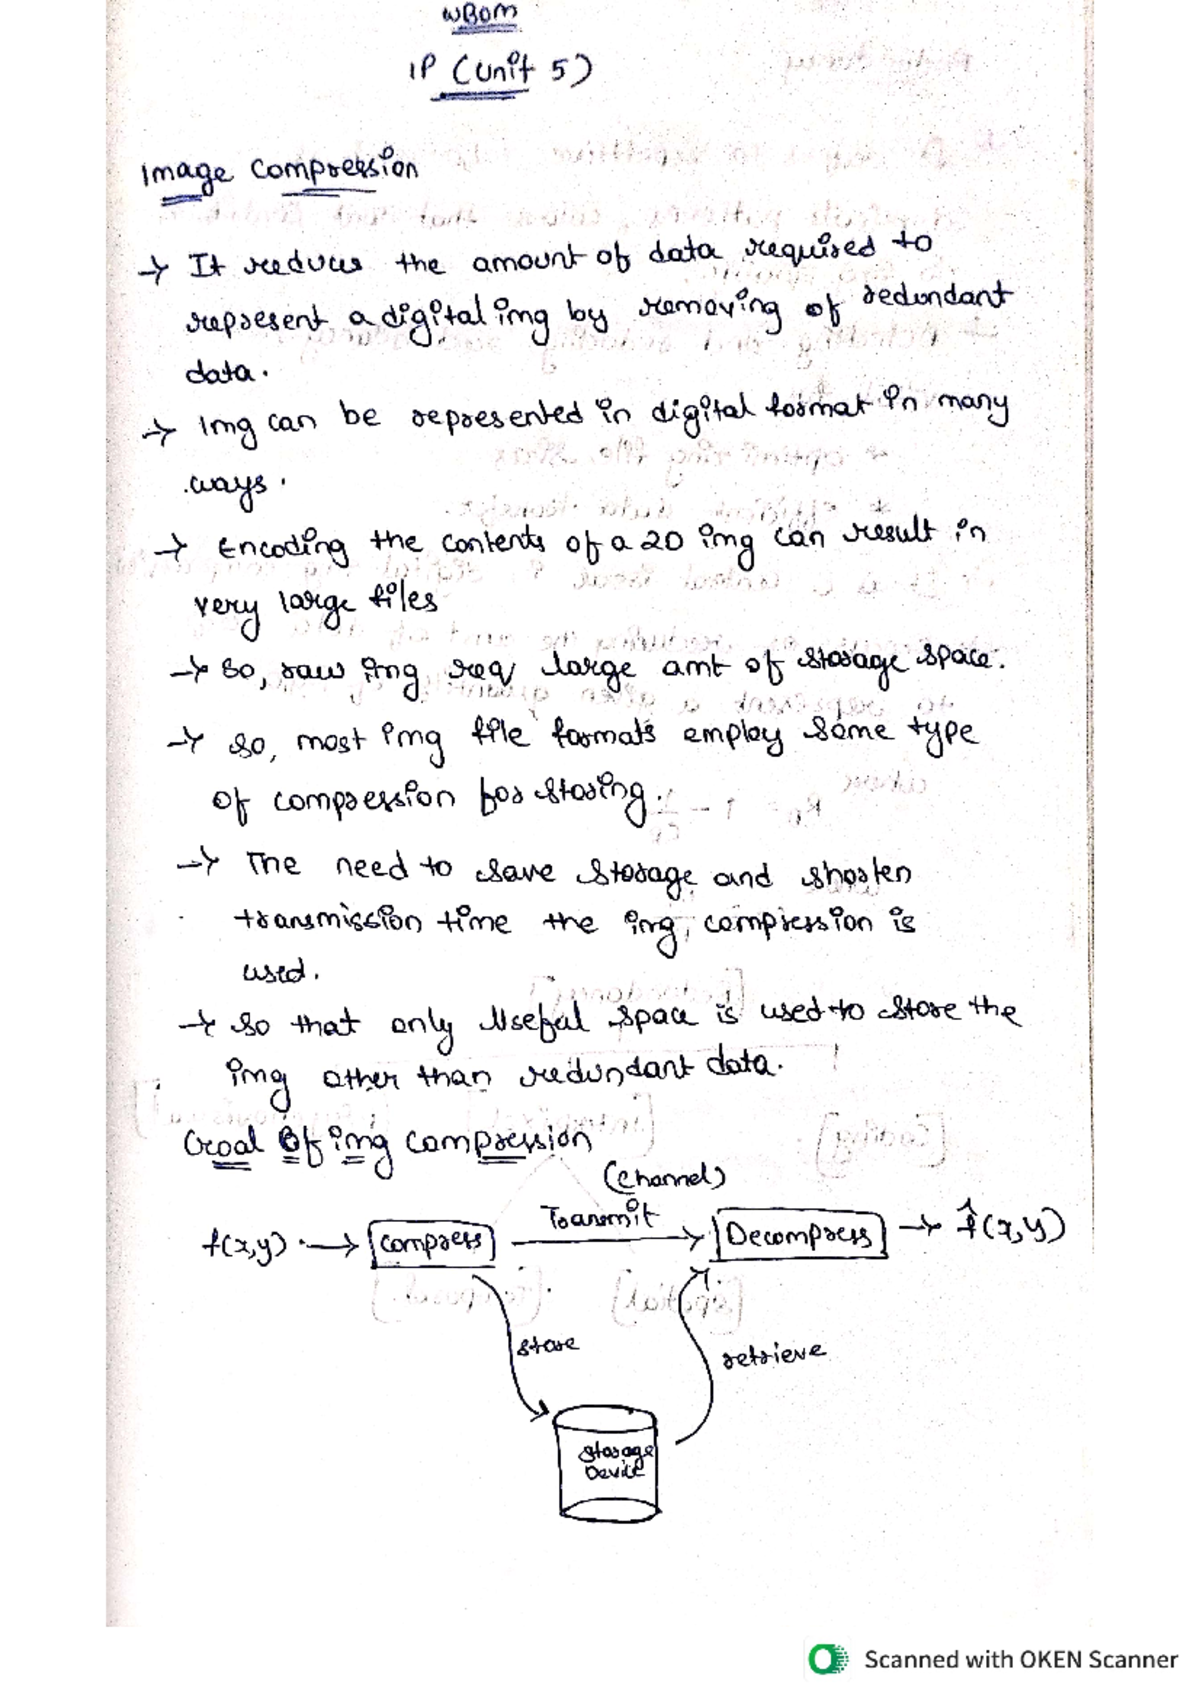 WBOM
IP (Unit 5)
Image Compression
→ It reduces the amount of data required to
represent a digital img by removing of redundant
data.
→ Img can be represented in digital format in many
ways.
→ Encoding the contents of a 2D img can result in
very large files
→ So, raw img req large amt of storage space.
→ So, most img file formats employ some type
of compression for storing.
→ The need to save storage and shorten
transmission time the img, compression is
used.
→ So that only Useful space is used to store the
img other than redundant data.
Goal Of img compression
(Channel)
f(x,y) → Compress Transmit → Decompress → f̂(x,y)
store
retrieve
Storage
Device
Scanned with OKEN Scanner